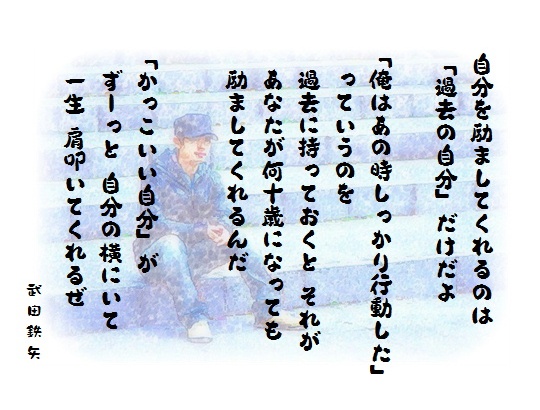 自分を励ましてくれるのは
「過去の自分」だけだよ
「俺はあの時しっかり行動した」
っていうのを
過去に持っておくと それが
あなたが何十歳になっても
励ましてくれるんだ
「かっこいい自分」が
ずーっと 自分の横にいて
一生 肩叩いてくれるぜ
武田鉄矢